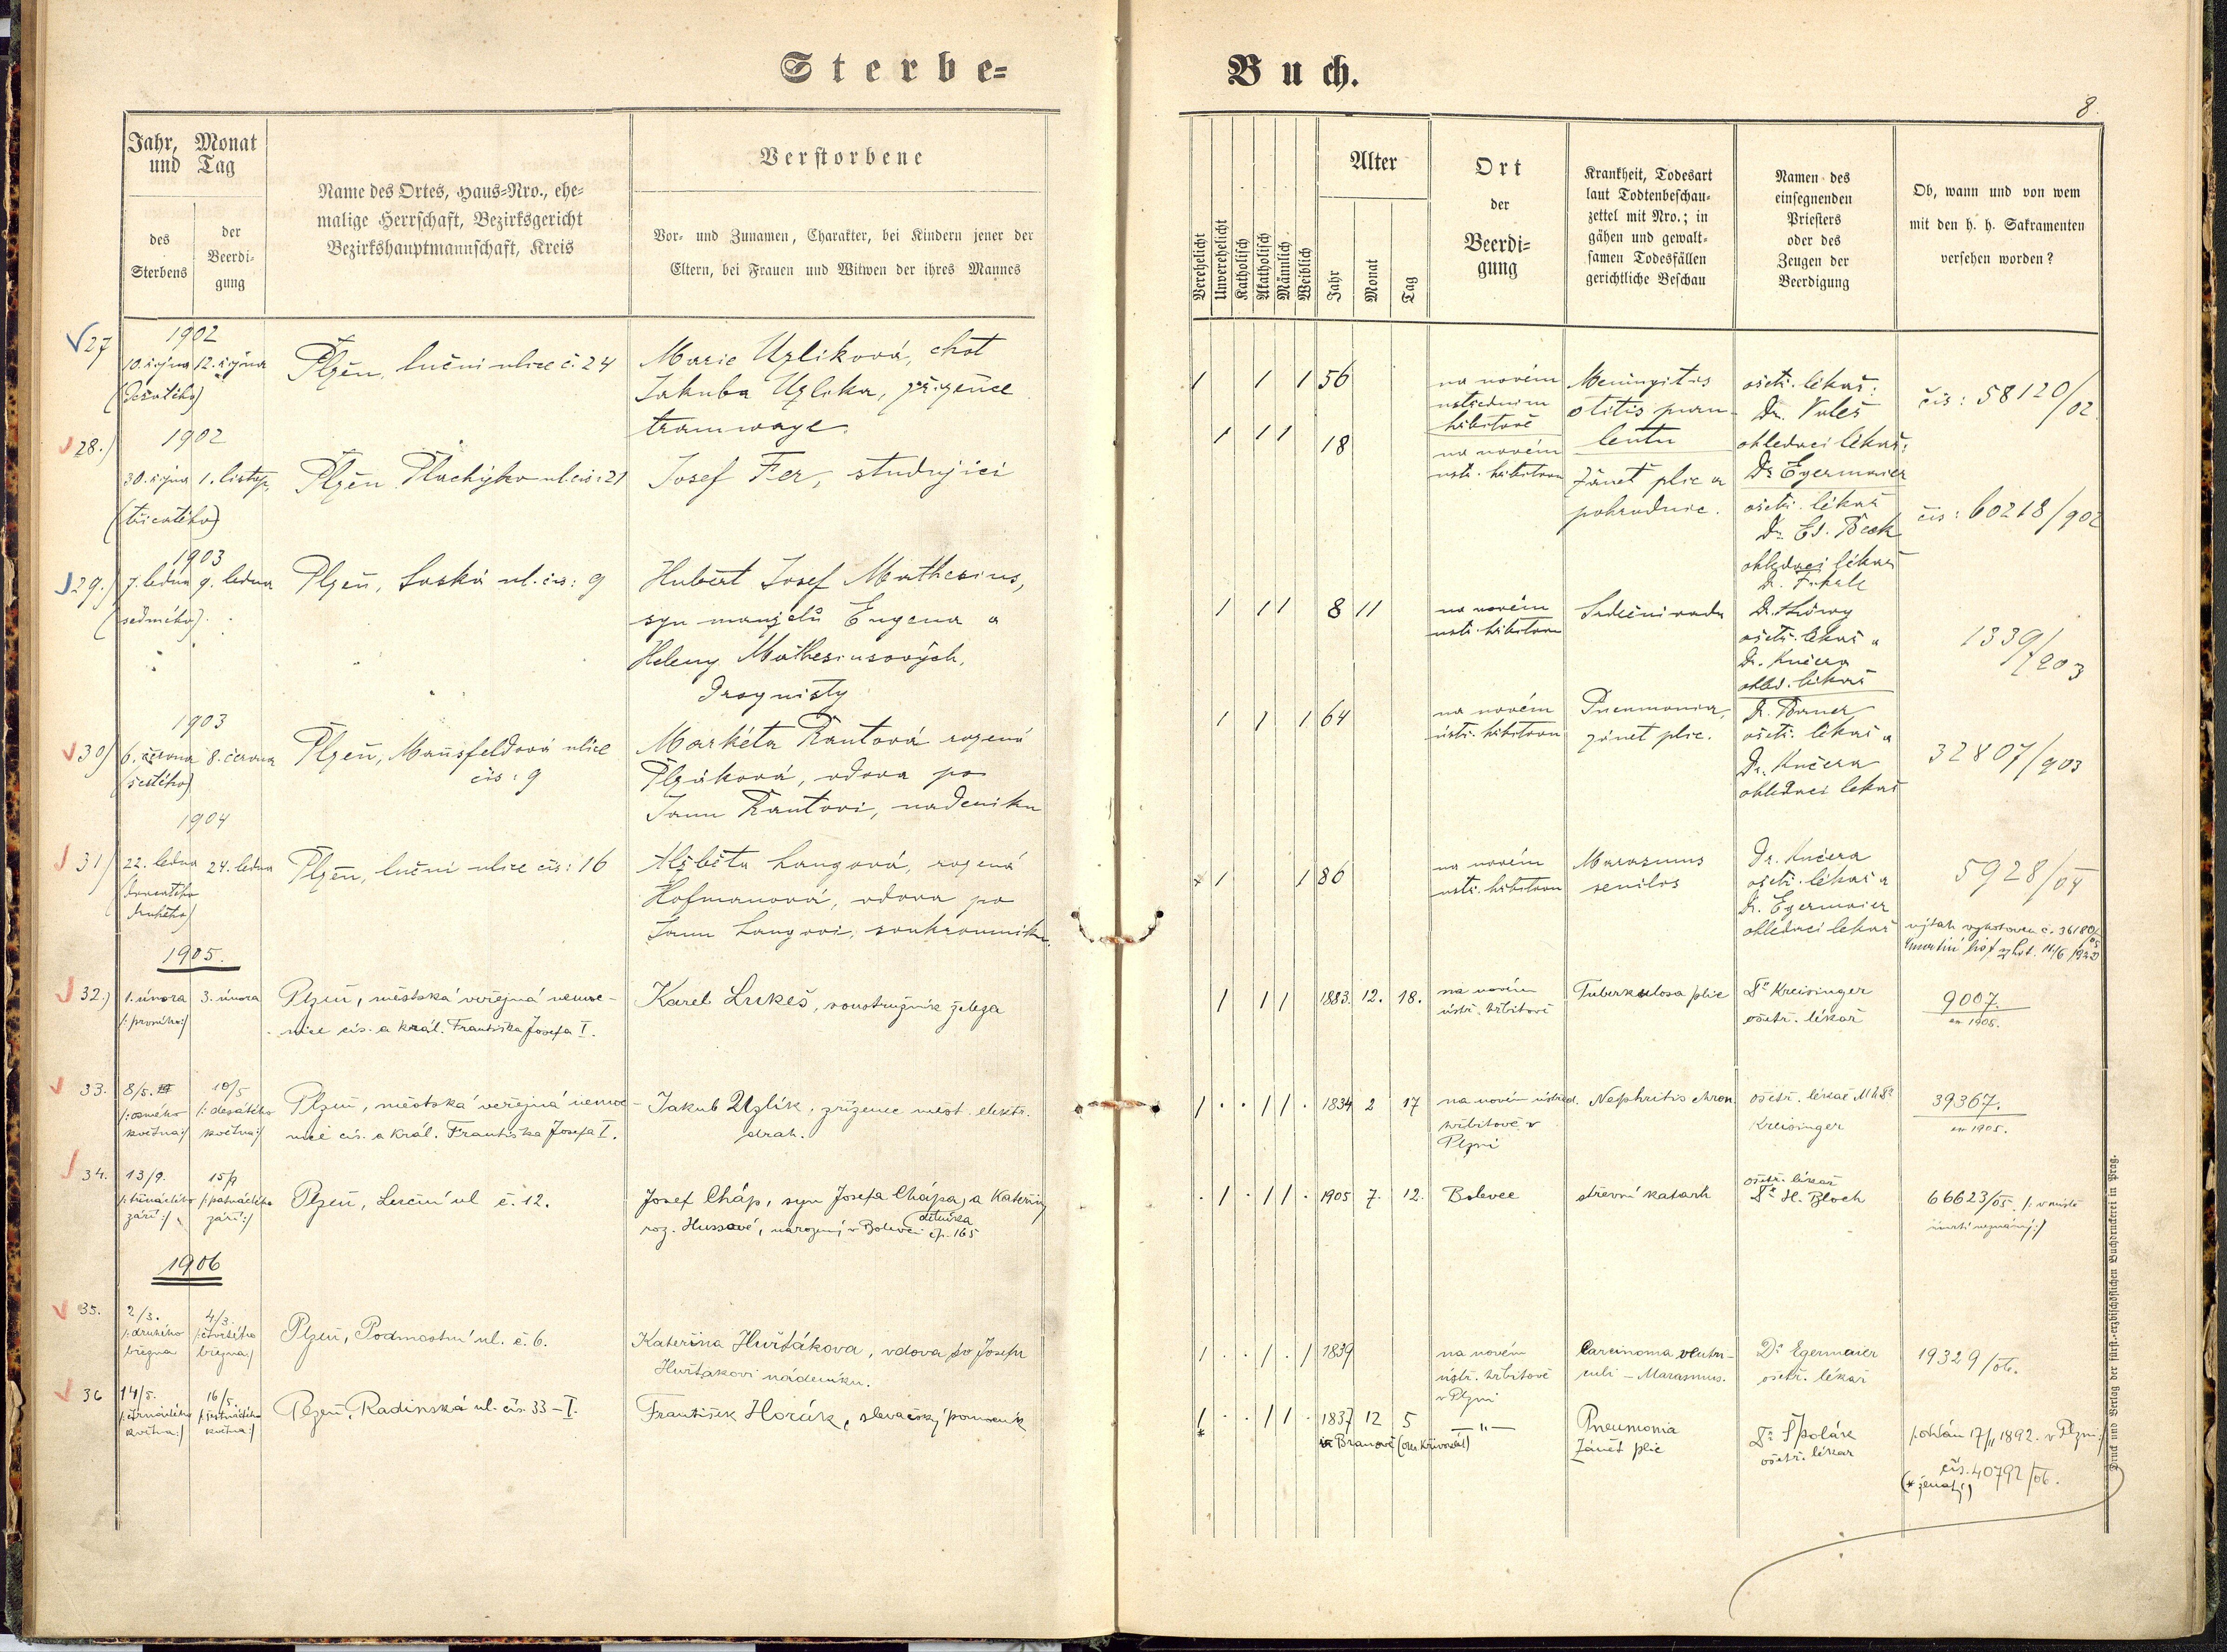 Sterbe=
Buch.
8.
Jahr, Monat
und Tag
des
Sterbens
der
Beerdi=
gung
Name des Ortes, Haus=Nro., ehe=
malige Herrschaft, Bezirksgericht
Bezirkshauptmannschaft, Kreis
Verstorbene
Vor= und Zunamen, Charakter, bei Kindern jener der
Eltern, bei Frauen und Witwen der ihres Mannes
Verehelicht
Unverehelicht
Katholisch
Akatholisch
Männlich
Weiblich
Alter
Jahr
Monat
Tag
Ort
der
Beerdi=
gung
Krankheit, Todesart
laut Todtenbeschau=
zettel mit Nro.; in
gähen und gewalt=
samen Todesfällen
gerichtliche Beschau
Namen des
einsegnenden
Priesters
oder des
Zeugen der
Beerdigung
Ob, wann und von wem
mit den h. h. Sakramenten
versehen worden?
27
1902
10. října 12. října
(desátého)
Plzeň, luční ulice č. 24
Marie Uzlíková, choť
Jakuba Uzlíka, zřízence
tramwaye.
1 1 1 56
na novém
ústředním
hřbitově
Meningitis
otitis puru-
lenta
ošetř. lékař:
Dr. Voleš
ohledací lékař:
Dr. Egermaier
čís: 58120/02
28.)
1902
30. října 1. listop.
(třicátého)
Plzeň Plachýho ul. čís: 21
Josef Fer, studující
1 1 1 18
na novém
ústř. hřbitovu
Zánět plic a
pohrudnice.
ošetř. lékař
Dr. Ed. Beck
ohledací lékař
čís: 60218/902
29.)
1903
7. ledna 9. ledna
(sedmého)
Plzeň, Saská ul. čís: 9
Hubert Josef Mathesius,
syn manželů Eugena a
Heleny Mathesiusových,
Droguisty
1 1 1 8 11
na novém
ústř. hřbitovu
Srdeční vada
Dr. Löwy
ošetř. lékař a
Dr. Kučera
ohled. lékař
1339/903
30)
1903
6. června 8. června
(šestého)
Plzeň, Mansfeldová ulice
čís: 9
Markéta Rautová rozená
Plzáková, vdova po
Janu Rautovi, nadeníku
1 1 1 64
na novém
ústř. hřbitovu
Pneumonia,
zánět plic.
ošetř. lékař a
Dr. Kučera
ohledací lékař
32807/903
31)
1904
22. ledna 24. ledna
(dvacátého
druhého)
Plzeň, luční ulice čís: 16
Alžběta Langová, rozená
Hofmanová, vdova po
Janu Langovi, soukromníku.
1 1 86
na novém
ústř. hřbitovu
Marasmus
senilos
Dr. Kučera
ošetř. lékař a
Dr. Egermaier
ohledací lékař
5928/04
1905.
32.)
1. února 3. února
/: prvního:/
Plzeň, městská veřejná nemoc-
nice cís. a král. Františka Josefa I.
Karel Lukeš, soustružník železa
1 1 1 1883. 12. 18.
na novém
ústř. hřbitově
Tuberkulosa plic
Dr Kreisinger
ošetř. lékař
9007.
ex 1905.
33.
8/5. 10/5
/: osmého /: desátého
května:/ května:/
Plzeň, městská veřejná nemoc-
nice cís. a král. Františka Josefa I.
Jakub Uzlík, zřízenec měst. elektr.
drah.
1 . . 1 1 . 1834 2 17
na novém ústřed.
hřbitově v
Plzni
Nephritis chron
ošetř. lékař MUDr
Kreisinger
39367.
ex 1905.
34.
13/9. 15/9
/: třináctého /: patnáctého
září:/ září:/
Plzeň, Luční ul č. 12.
Josef Cháp, syn Josefa Chápa, a Kateřiny
dělníka
roz. Hussové, narozený v Bolevci čp. 165
. 1 . 1 1 . 1905 7. 12.
Bolevec
střevní katarh
ošetř. lékař
Dr H. Bloch
66623/05. /: v místě
úmrtí neznámý:/
1906
35.
2/3. 4/3.
/: druhého /: čtvrtého
března března:/
Plzeň, Podmostní ul. č. 6.
Kateřina Huršákova, vdova po Josefu
Huršakovi nádeníku.
1 . . 1 . 1 1839
na novém
ústř. hřbitově
v Plzni
Carcinoma ventri-
culi – Marasmus.
Dr Egermaier
ošetř. lékař
19329/06.
36
14/5. 16/5.
/: čtrnáctého /: šestnáctého
května:/ května:/
Plzeň, Radinská ul. čís. 33 – I.
František Horák, slevačský pomocník
1 . . 1 1 . 1837 12 5
*
– " –
v Branově (ok. Křivoklát)
Pneumonia
Zánět plic
Dr Špolák
ošetř. lékař
17/11 1892. v Plzni:/
čís. 40792/06.
(* ženatý)
Druck und Verlag der fürst.=erzbischöflichen Buchdruckerei in Prag.